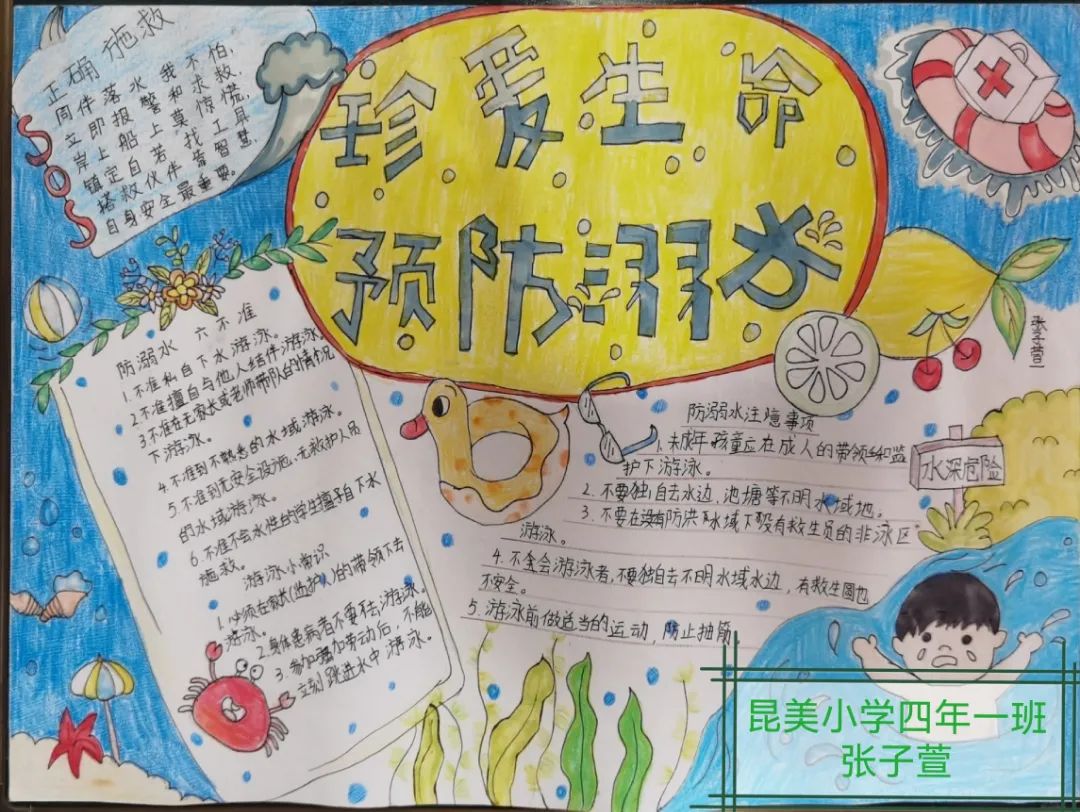 珍爱生命
预防溺水
正确施救
同伴落水我不怕，
立即报警和求救，
岸上船上莫惊慌，
镇定自若找工具
搭救伙伴靠智慧，
自身安全最重要。
SOS
防溺水 六不准
1.不准私自下水游泳。
2.不准擅自与他人结伴游泳
3.不准在无家长或老师带队的情况
下游泳。
4.不准到不熟悉的水域游泳。
5.不准到无安全设施、无救护人员
的水域游泳。
6.不准不会水性的学生擅自下水
施救。
游泳小常识
1.必须在家长(监护人)的带领下去
游泳。
2.身体患病者不要去游泳。
3.参加强加劳动后，不能
立刻跳进水中游泳。
张子萱
防溺水注隐事项
1.未成年孩童应在成人的带领和监
护下游泳。
2.不要独自去水边、池塘等不明水域地。
3.不要在没有防洪水域下没有救生员的非泳区
游泳。
4.不会游泳者，不要独自去不明水域水边，有救生圈也
不安全。
5.游泳前做适当的运动，防止抽筋
水深危险
昆美小学四年一班
张子萱